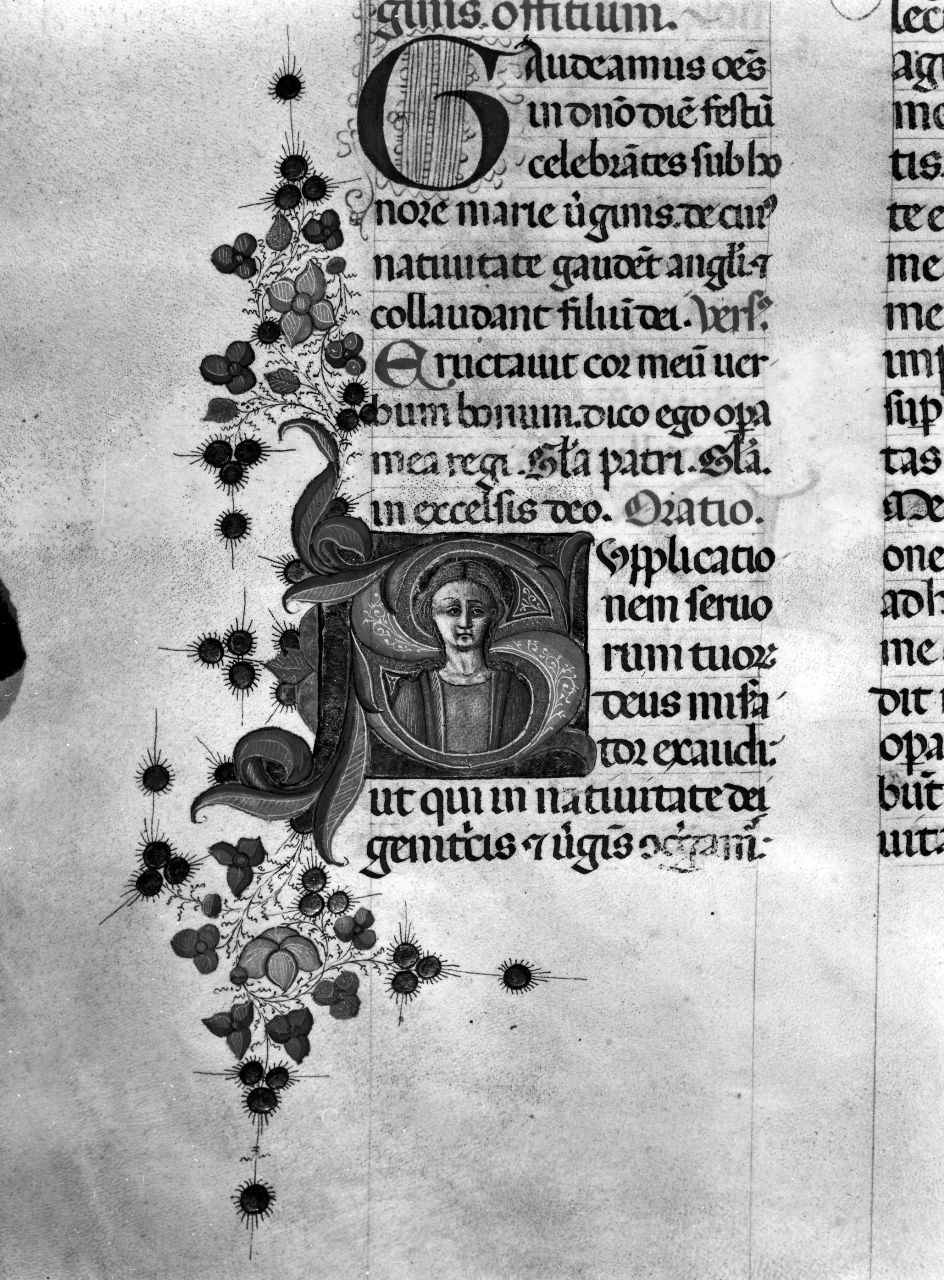 ginis. offitium.
Gaudeamus oēs
in dn̄o diē festū
celebrātes sub ho
nore marie ūginis. de cuiꝰ
natiuitate gaudēt angli. ⁊
collaudant filiūī dei. Versꝰ.
Eructauit cor meū uer
bum bonum. dico ego opa
mea regi. Gl̄a patri. Gl̄a.
in excelsis deo. Oratio.
Supplicatio
nem seruo
rum tuoꝝ
deus mis̄a
tor exaudi.
ut qui in natiuitate dei
genit̄cis ⁊ ūgīs
lec
ag
me
tis.
te e
me
me
imp
sup
tas
ade
one
adh
me
dit
opa
būt
uit.